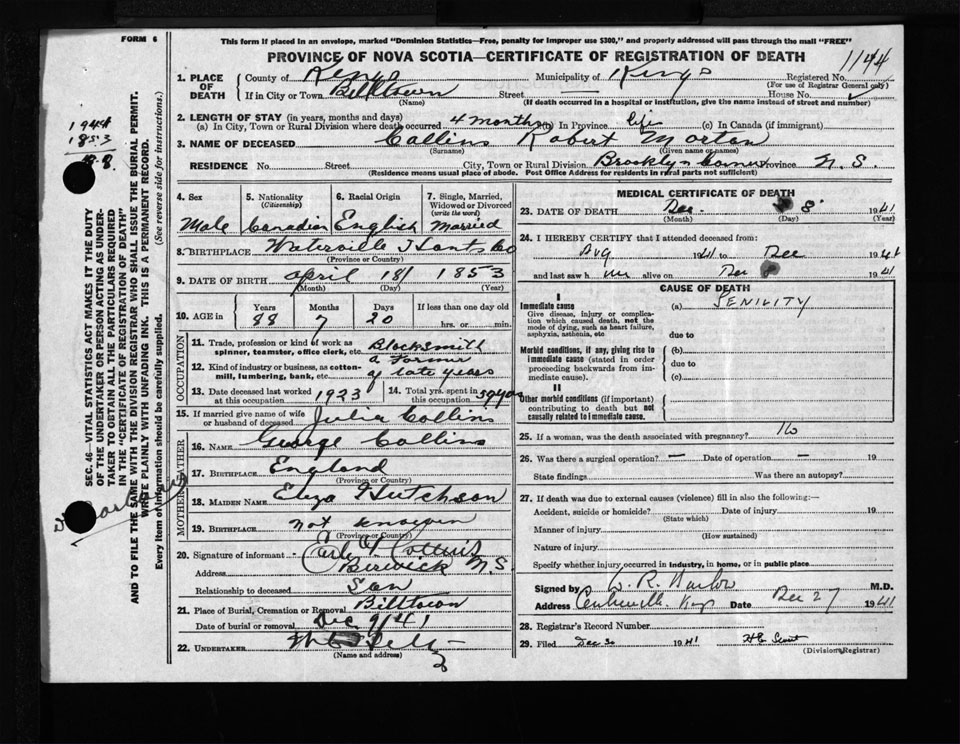 FORM 6
This form if placed in an envelope, marked "Dominion Statistics—Free, penalty for improper use $300," and properly addressed will pass through the mail "FREE"
PROVINCE OF NOVA SCOTIA—CERTIFICATE OF REGISTRATION OF DEATH
1144
1. PLACE OF DEATH
County of Kings Municipality of Kings Registered No.
(For use of Registrar General only)
If in City or Town Billtown Street — House No.
(Name) (If death occurred in a hospital or institution, give the name instead of street and number)
2. LENGTH OF STAY (in years, months and days)
(a) In City, Town or Rural Division where death occurred 4 months (b) In Province life (c) In Canada (if immigrant)
3. NAME OF DECEASED Collins Robert Morton
(Surname) (Given name or names)
RESIDENCE No. Street City, Town or Rural Division Brooklyn Corner Province N.S.
(Residence means usual place of abode. Post Office Address for residents in rural parts not sufficient)
4. Sex 5. Nationality (Citizenship) 6. Racial Origin 7. Single, Married, Widowed or Divorced (write the word)
Male Canadian English Married
8. BIRTHPLACE Waterville Hants Co
(Province or Country)
9. DATE OF BIRTH April 18 1853
(Month) (Day) (Year)
10. AGE in Years Months Days If less than one day old
88 7 20 hrs. or min.
OCCUPATION
11. Trade, profession or kind of work as spinner, teamster, office clerk, etc. Blacksmith
12. Kind of industry or business, as cotton-mill, lumbering, bank, etc. a farmer of late years
13. Date deceased last worked at this occupation 1923
14. Total yrs. spent in this occupation
15. If married give name of wife or husband of deceased Julia Collins
FATHER
16. NAME George Collins
17. BIRTHPLACE England
(Province or Country)
MOTHER
18. MAIDEN NAME Eliza Hutchson
19. BIRTHPLACE not known
(Province or Country)
20. Signature of informant Collins
Address Berwick N.S.
Relationship to deceased Son
21. Place of Burial, Cremation or Removal Billtown
Date of burial or removal Dec 9/41
22. UNDERTAKER
(Name and address)
MEDICAL CERTIFICATE OF DEATH
23. DATE OF DEATH Dec. 8 1941
(Month) (Day) (Year)
24. I HEREBY CERTIFY that I attended deceased from:
Aug 1941 to Dec 1941
and last saw him alive on Dec 1941
CAUSE OF DEATH
I
Immediate cause (a) SENILITY
Give disease, injury or complication which caused death, not the mode of dying, such as heart failure, asphyxia, asthenia, etc
due to
Morbid conditions, if any, giving rise to immediate cause (stated in order proceeding backwards from immediate cause).
(b)
due to
(c)
II
Other morbid conditions (if important) contributing to death but not causally related to immediate cause.
25. If a woman, was the death associated with pregnancy?
26. Was there a surgical operation? — Date of operation — 19
State findings Was there an autopsy?
27. If death was due to external causes (violence) fill in also the following:—
Accident, suicide or homicide? Date of injury 19
(State which)
Manner of injury
(How sustained)
Nature of injury
Specify whether injury occurred in industry, in home, or in public place
Signed by M.D.
Address Centreville Kings Date Dec 27 1941
28. Registrar's Record Number
29. Filed Dec 30 1941
(Division Registrar)
1941
1853
88
SEC. 46—VITAL STATISTICS ACT MAKES IT THE DUTY OF THE UNDERTAKER OR PERSON ACTING AS UNDERTAKER TO OBTAIN ALL THE PARTICULARS REQUIRED IN THE "CERTIFICATE OF REGISTRATION OF DEATH" AND TO FILE THE SAME WITH THE DIVISION REGISTRAR WHO SHALL ISSUE THE BURIAL PERMIT.
WRITE PLAINLY WITH UNFADING INK. THIS IS A PERMANENT RECORD.
Every item of information should be carefully supplied. (See reverse side for instructions.)